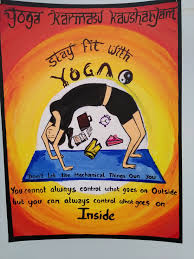 yoga karmasu kaushalyam
Stay fit with
YOGA
Don't let the Mechanical Things Own You
You cannot always control what goes on Outside
but you can always control what goes on
Inside